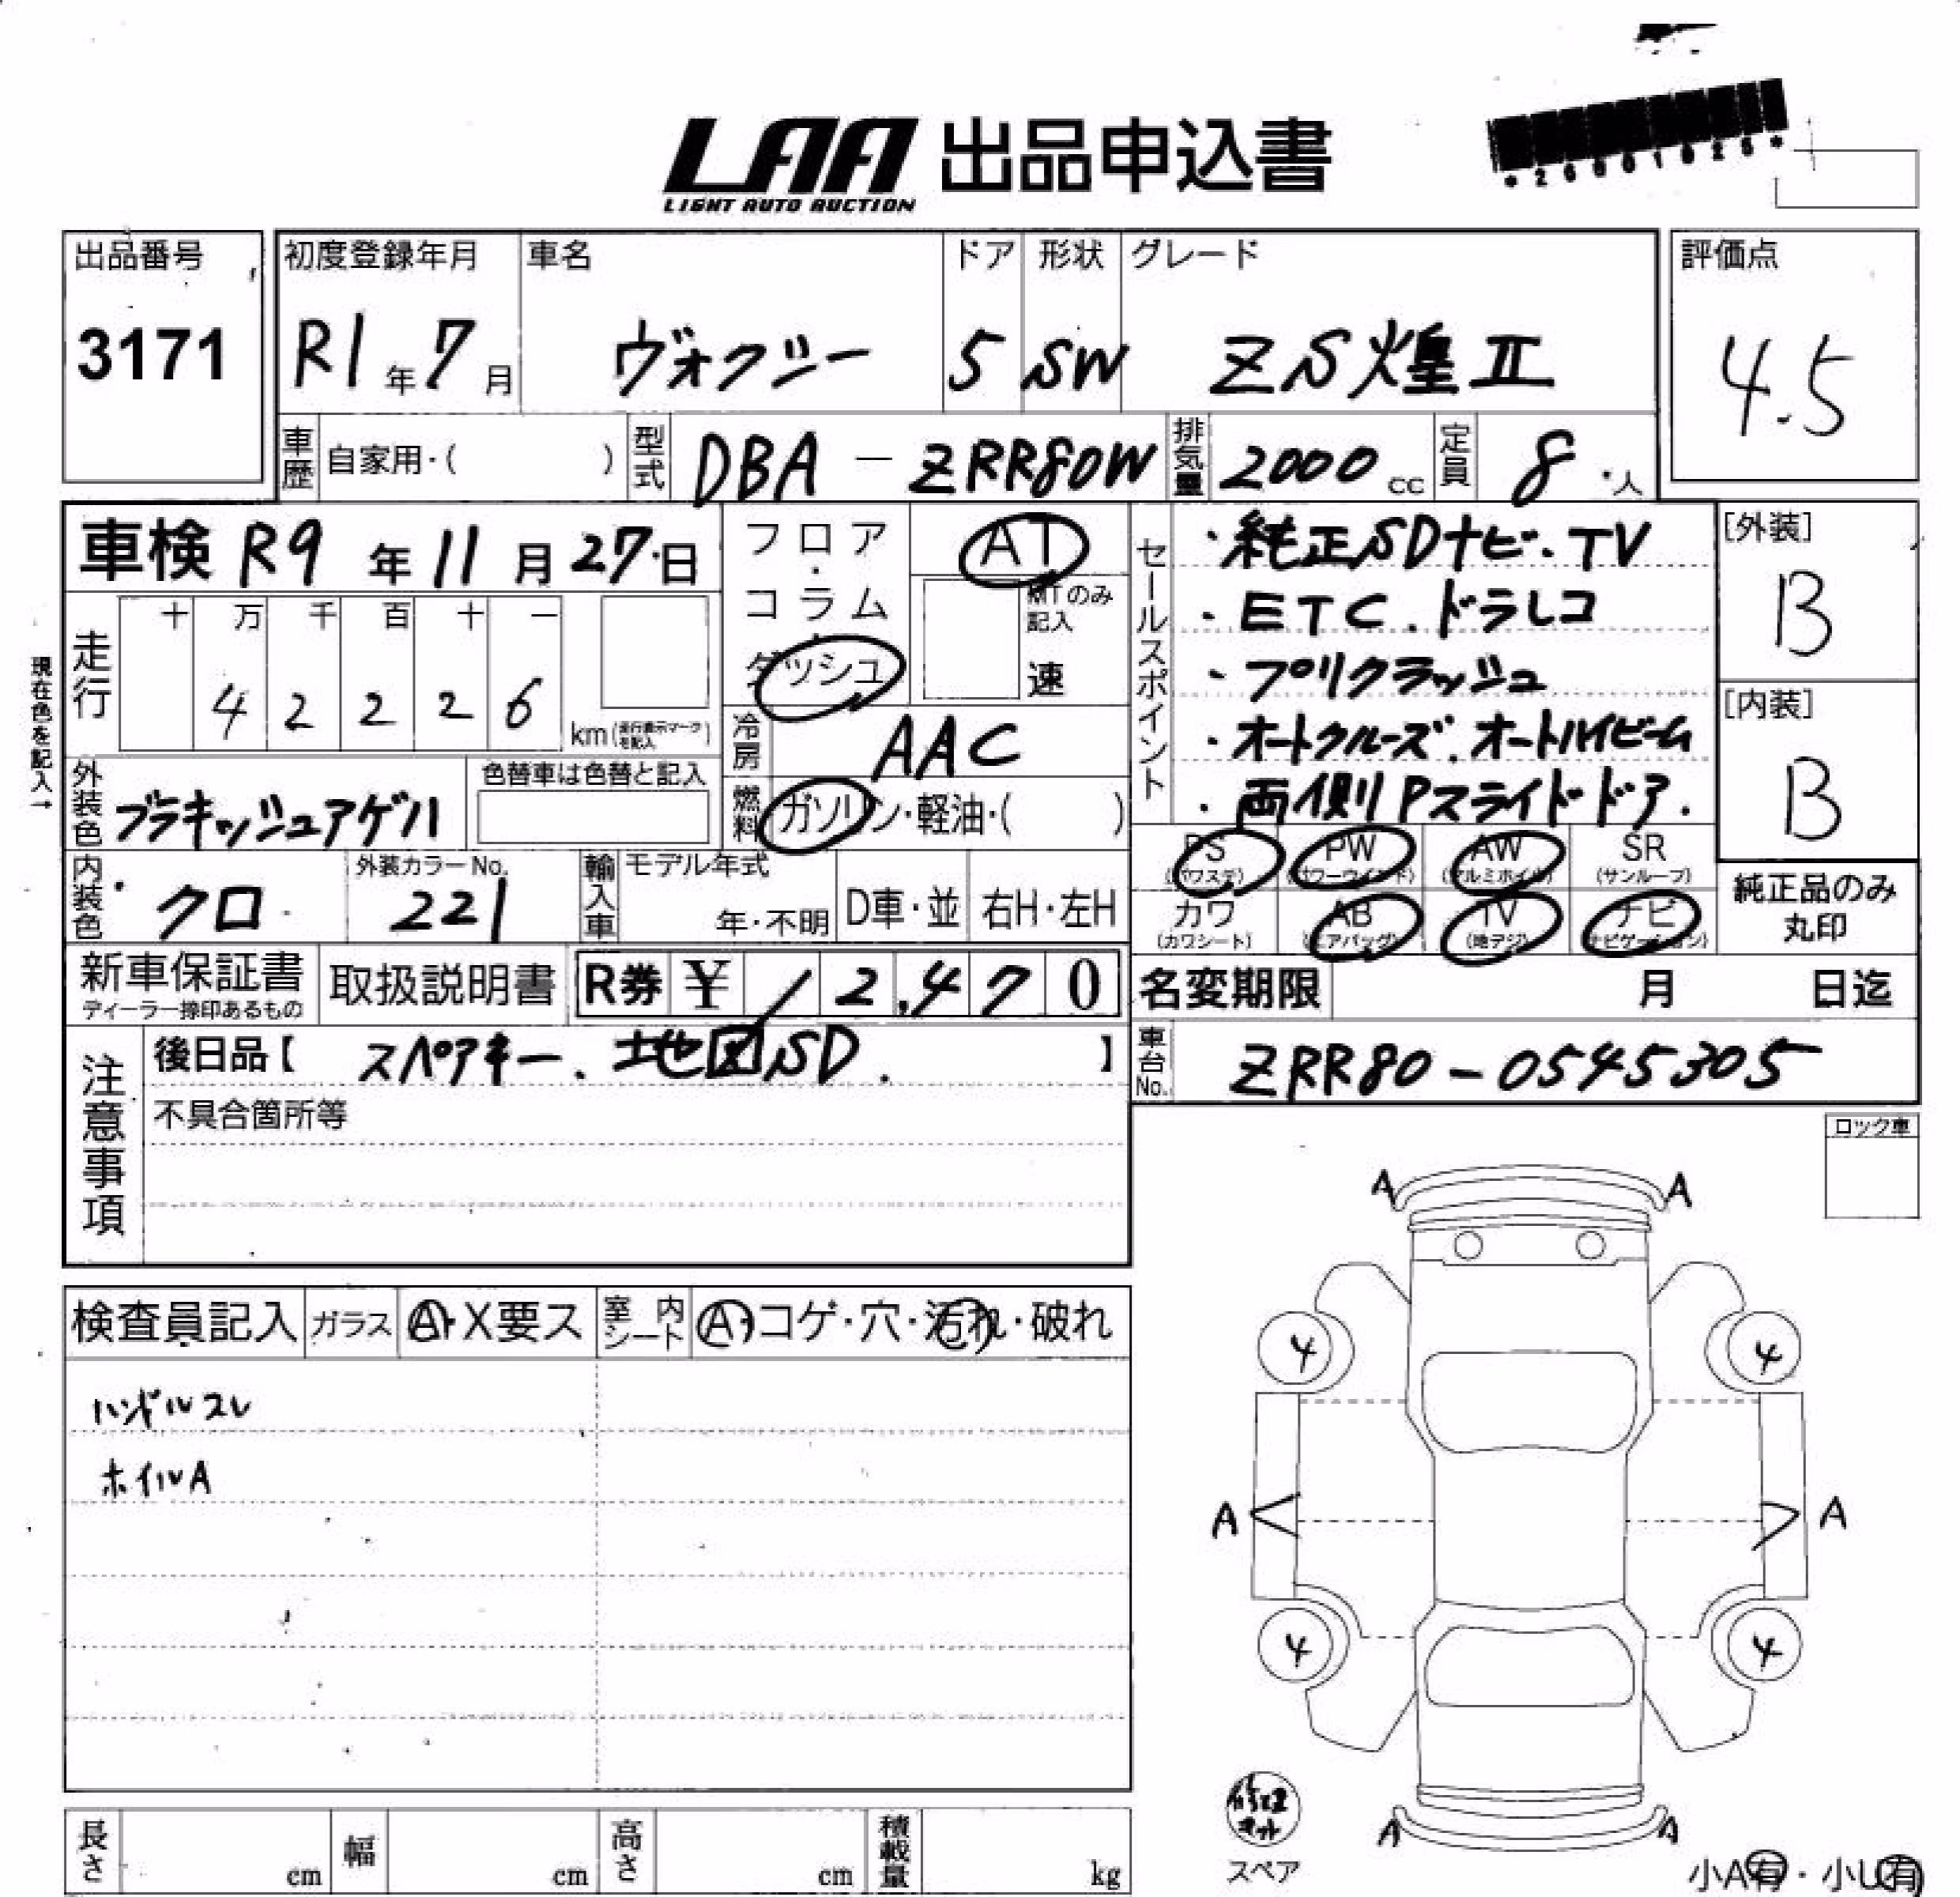 LAA 出品申込書
LIGHT AUTO AUCTION
*26001026*
出品番号
3171
初度登録年月 車名 ドア 形状 グレード
R1年7月 ヴォクシー 5 SW ZS煌Ⅱ
評価点
4.5
車歴 自家用・( ) 型式 DBA - ZRR80W 排気量 2000cc 定員 8人
車検 R9年11月27日
現在色を記入→
走行 十 万 千 百 十 一
4 2 2 2 6 km (走行表示マークを記入)
フロア・コラム・ダッシュ
AT
MTのみ記入
速
冷房 AAC
燃料 ガソリン・軽油・( )
外装色 ブラキッシュアゲハ 色替車は色替と記入
内装色 クロ 外装カラーNo. 221
輸入車 モデル年式 年・不明 D車・並 右H・左H
セールスポイント
・純正SDナビ.TV
・ETC.ドラレコ
・プリクラッシュ
・オートクルーズ.オートハイビーム
・両側Pスライドドア.
[外装]
B
[内装]
B
PS (パワステ) PW (パワーウインド) AW (アルミホイル) SR (サンルーフ)
カワ (カワシート) AB (エアバッグ) TV (地デジ) ナビ (ナビゲーション)
純正品のみ丸印
新車保証書 ディーラー捺印あるもの 取扱説明書 R券 ¥ 12,470
名変期限 月 日迄
車台No. ZRR80-0545305
注意事項
後日品【 スペアキー.地図SD. 】
不具合箇所等
ロック車
検査員記入 ガラス A・X要ス 室内シート A・コゲ・穴・汚れ・破れ
ハンドルスレ
ホイルA
A A
4 4
A A
4 4
A A
修理キット
スペア
小A有・小U有
長さ cm 幅 cm 高さ cm 積載量 kg